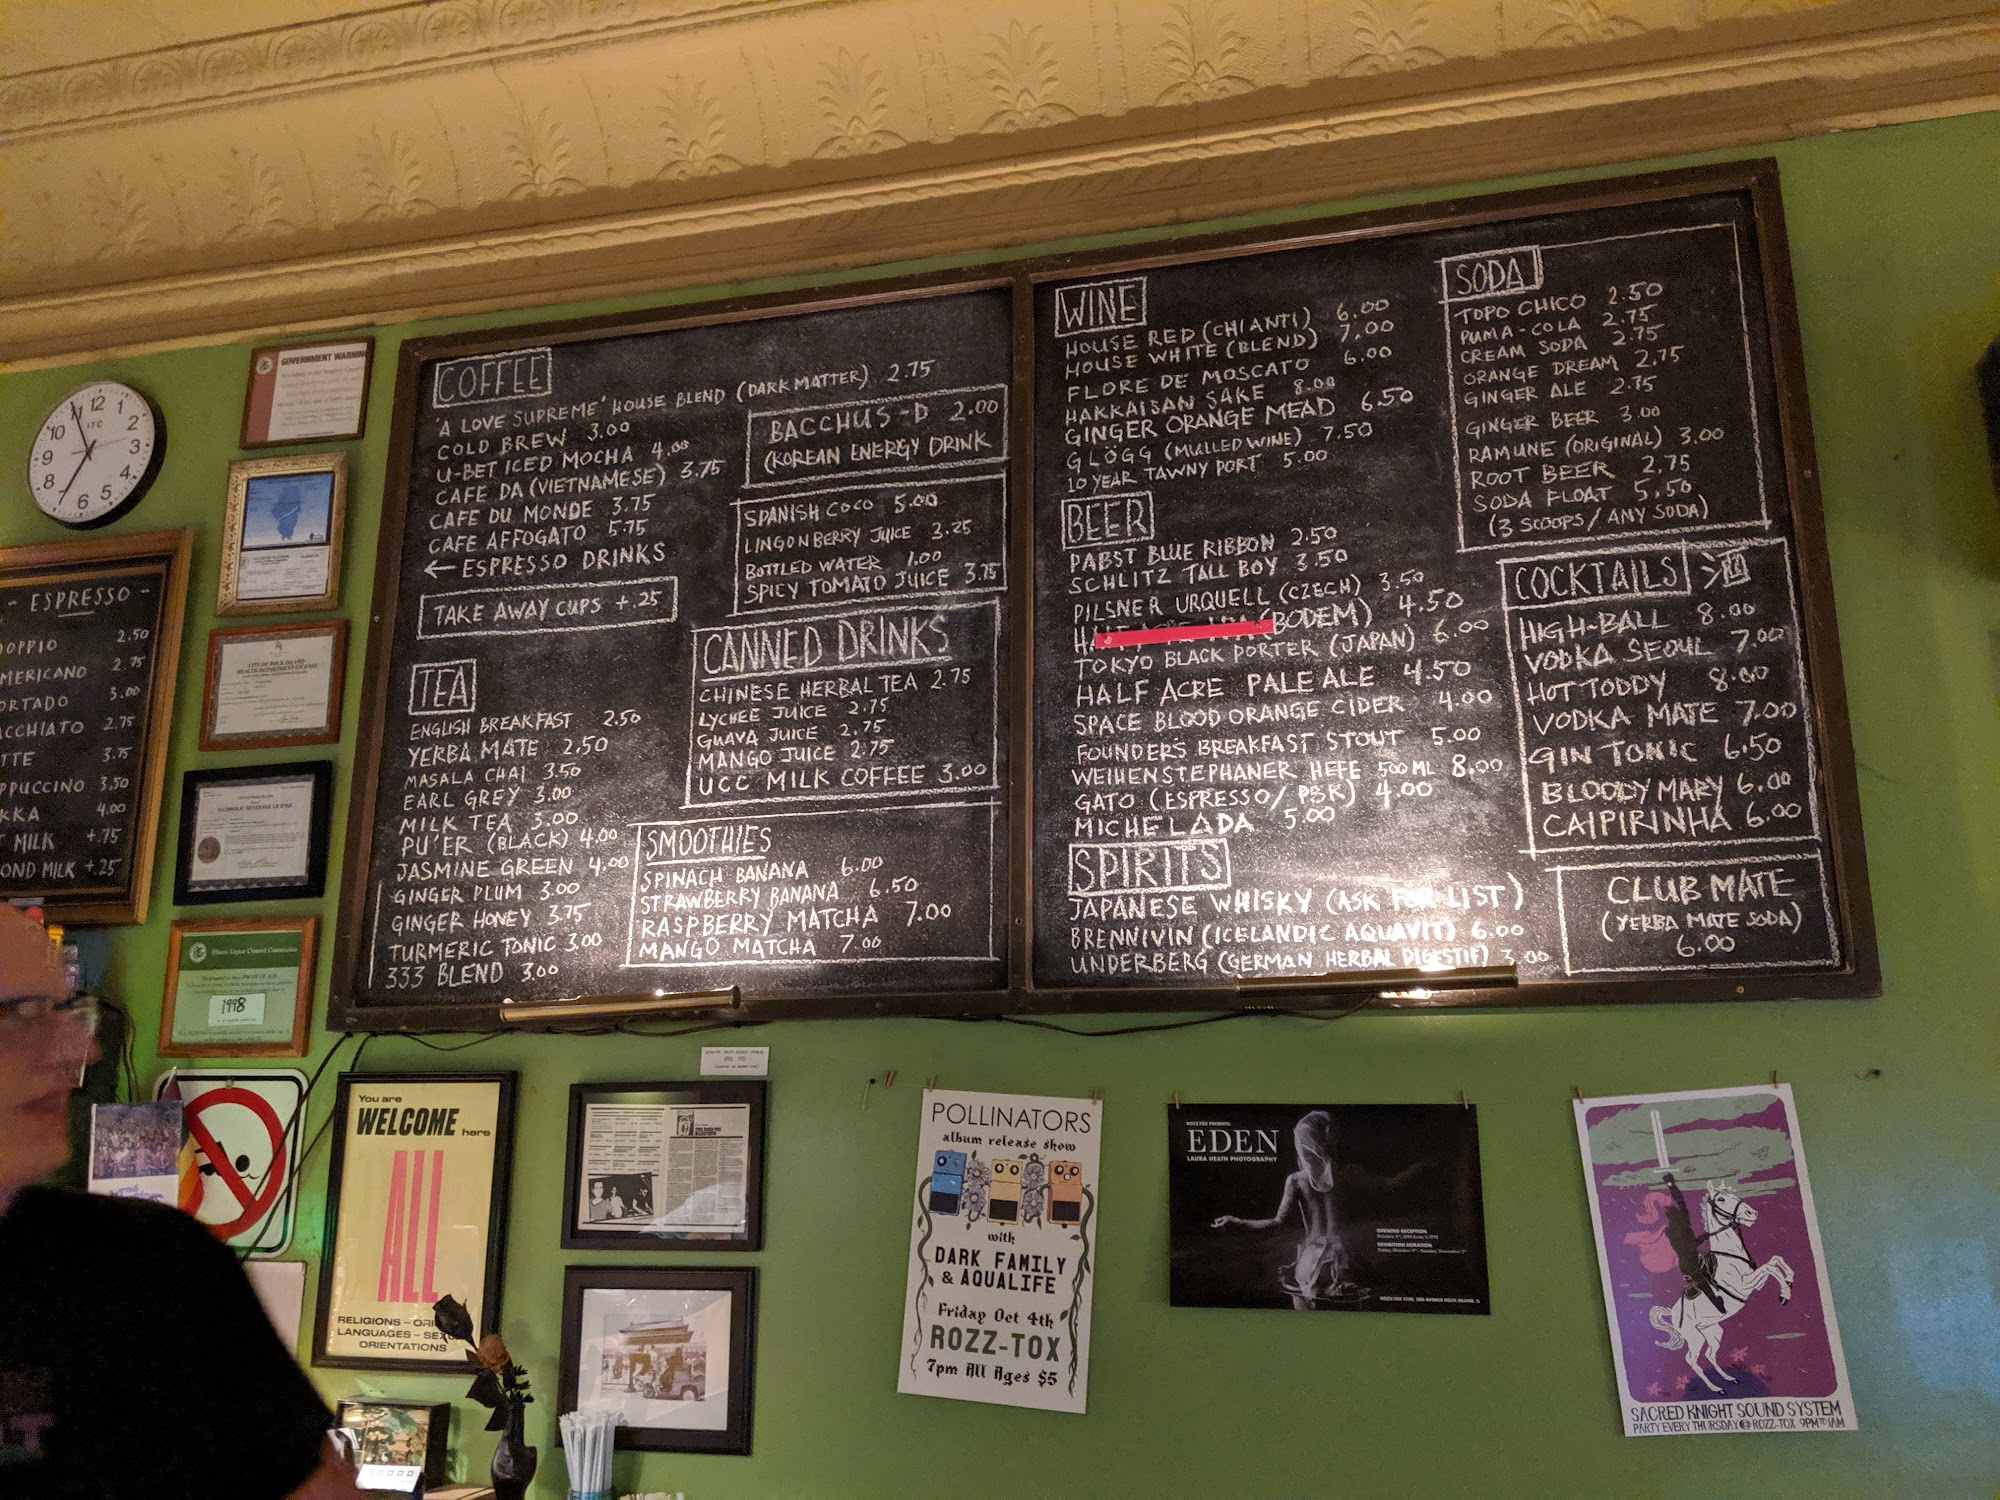 GOVERNMENT WARNING
12
1
2
3
4
5
6
7
8
9
10
11
ITC
- ESPRESSO -
OPPIO 2.50
MERICANO 2.75
ORTADO 3.00
ACCHIATO 2.75
TTE 3.75
PPUCCINO 3.50
KKA 4.00
T MILK +.75
OND MILK +.25
CITY OF ROCK ISLAND
HEALTH DEPARTMENT LICENSE
ALCOHOLIC BEVERAGE LICENSE
Illinois Liquor Control Commission
1998
COFFEE
'A LOVE SUPREME' HOUSE BLEND (DARK MATTER) 2.75
COLD BREW 3.00
U-BET ICED MOCHA 4.00
CAFE DA (VIETNAMESE) 3.75
CAFE DU MONDE 3.75
CAFE AFFOGATO 5.75
← ESPRESSO DRINKS
TAKE AWAY CUPS +.25
TEA
ENGLISH BREAKFAST 2.50
YERBA MATE 2.50
MASALA CHAI 3.50
EARL GREY 3.00
MILK TEA 3.00
PU'ER (BLACK) 4.00
JASMINE GREEN 4.00
GINGER PLUM 3.00
GINGER HONEY 3.75
TURMERIC TONIC 3.00
333 BLEND 3.00
BACCHUS-D 2.00
(KOREAN ENERGY DRINK
SPANISH COCO 5.00
LINGONBERRY JUICE 3.25
BOTTLED WATER 1.00
SPICY TOMATO JUICE 3.75
CANNED DRINKS
CHINESE HERBAL TEA 2.75
LYCHEE JUICE 2.75
GUAVA JUICE 2.75
MANGO JUICE 2.75
UCC MILK COFFEE 3.00
SMOOTHIES
SPINACH BANANA 6.00
STRAWBERRY BANANA 6.50
RASPBERRY MATCHA 7.00
MANGO MATCHA 7.00
WINE
HOUSE RED (CHIANTI) 6.00
HOUSE WHITE (BLEND) 7.00
FLORE DE MOSCATO 6.00
HAKKAISAN SAKE 8.00
GINGER ORANGE MEAD 6.50
GLÖGG (MULLED WINE) 7.50
10 YEAR TAWNY PORT 5.00
BEER
PABST BLUE RIBBON 2.50
SCHLITZ TALL BOY 3.50
PILSNER URQUELL (CZECH) 3.50
(BODEM) 4.50
TOKYO BLACK PORTER (JAPAN) 6.00
HALF ACRE PALE ALE 4.50
SPACE BLOOD ORANGE CIDER 4.00
FOUNDERS BREAKFAST STOUT 5.00
WEIHENSTEPHANER HEFE 500 ML 8.00
GATO (ESPRESSO/PBR) 4.00
MICHELADA 5.00
SPIRITS
JAPANESE WHISKY (ASK FOR LIST)
BRENNIVIN (ICELANDIC AQUAVIT) 6.00
UNDERBERG (GERMAN HERBAL DIGESTIF) 3.00
SODA
TOPO CHICO 2.50
PUMA-COLA 2.75
CREAM SODA 2.75
ORANGE DREAM 2.75
GINGER ALE 2.75
GINGER BEER 3.00
RAMUNE (ORIGINAL) 3.00
ROOT BEER 2.75
SODA FLOAT 5.50
(3 SCOOPS/ANY SODA)
COCKTAILS
HIGH-BALL 8.00
VODKA SEOUL 7.00
HOT TODDY 8.00
VODKA MATE 7.00
GIN TONIC 6.50
BLOODY MARY 6.00
CAIPIRINHA 6.00
CLUB MATE
(YERBA MATE SODA)
6.00
You are
WELCOME here
ALL
RELIGIONS – ORI
LANGUAGES – SEX
ORIENTATIONS
POLLINATORS
album release show
with
DARK FAMILY
& AQUALIFE
Friday Oct 4th
ROZZ-TOX
7pm All Ages $5
ROZZ-TOX PRESENTS:
EDEN
LAURA HEATH PHOTOGRAPHY
OPENING RECEPTION
EXHIBITION DURATION
SACRED KNIGHT SOUND SYSTEM
PARTY EVERY THURSDAY @ ROZZ-TOX 9PM TO 1AM